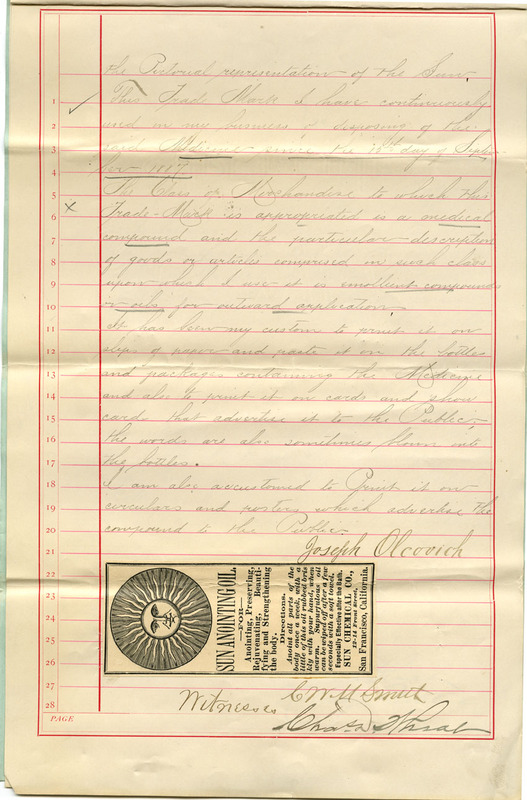 the Pictorial representation of the Sun.
This Trade Mark I have continuously
used in my business of disposing of the
said Medicine since the 18th day of Septem-
ber 1887
The Class of Merchandise to which this
Trade-Mark is appropriated is a medical
compound and the particular description
of goods or articles comprised in such class
upon which I use it is emollient compounds
or oils for outward application.
It has been my custom to print it on
slips of paper and paste it on the bottles
and packages containing the Medicine
and also to print it on cards and show
cards that advertise it to the Public;
the words are also sometimes blown into
the bottles.
I am also accustomed to Print it on
circulars and posters which advertise the
compound to the Public
Joseph Olcovich
SUN ANOINTING OIL,
—FOR—
Anointing, Preserving,
Rejuvenating, Beauti-
fying and Strengthening
the body.
Directions.
Anoint all parts of the
body once a week, with a
little of this oil rubbed bris
kly with your hand, when
warm. Supurfluous oil
can be wiped off after a few
seconds with a soft towel.
Especially Effective after the Bath.
SUN CHEMICAL CO.,
12-14 Front Street,
San Francisco, California.
Witnesses C W M Smith
Chas
1
2
3
4
5
6
7
8
9
10
11
12
13
14
15
16
17
18
19
20
21
22
23
24
25
26
27
28
PAGE